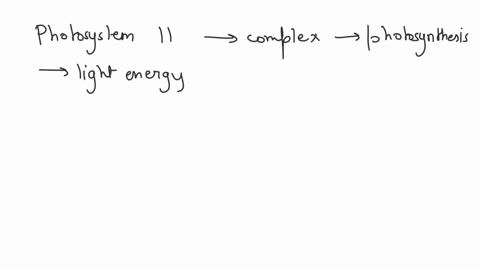 Photosystem II → complex → photosynthesis
→ light energy